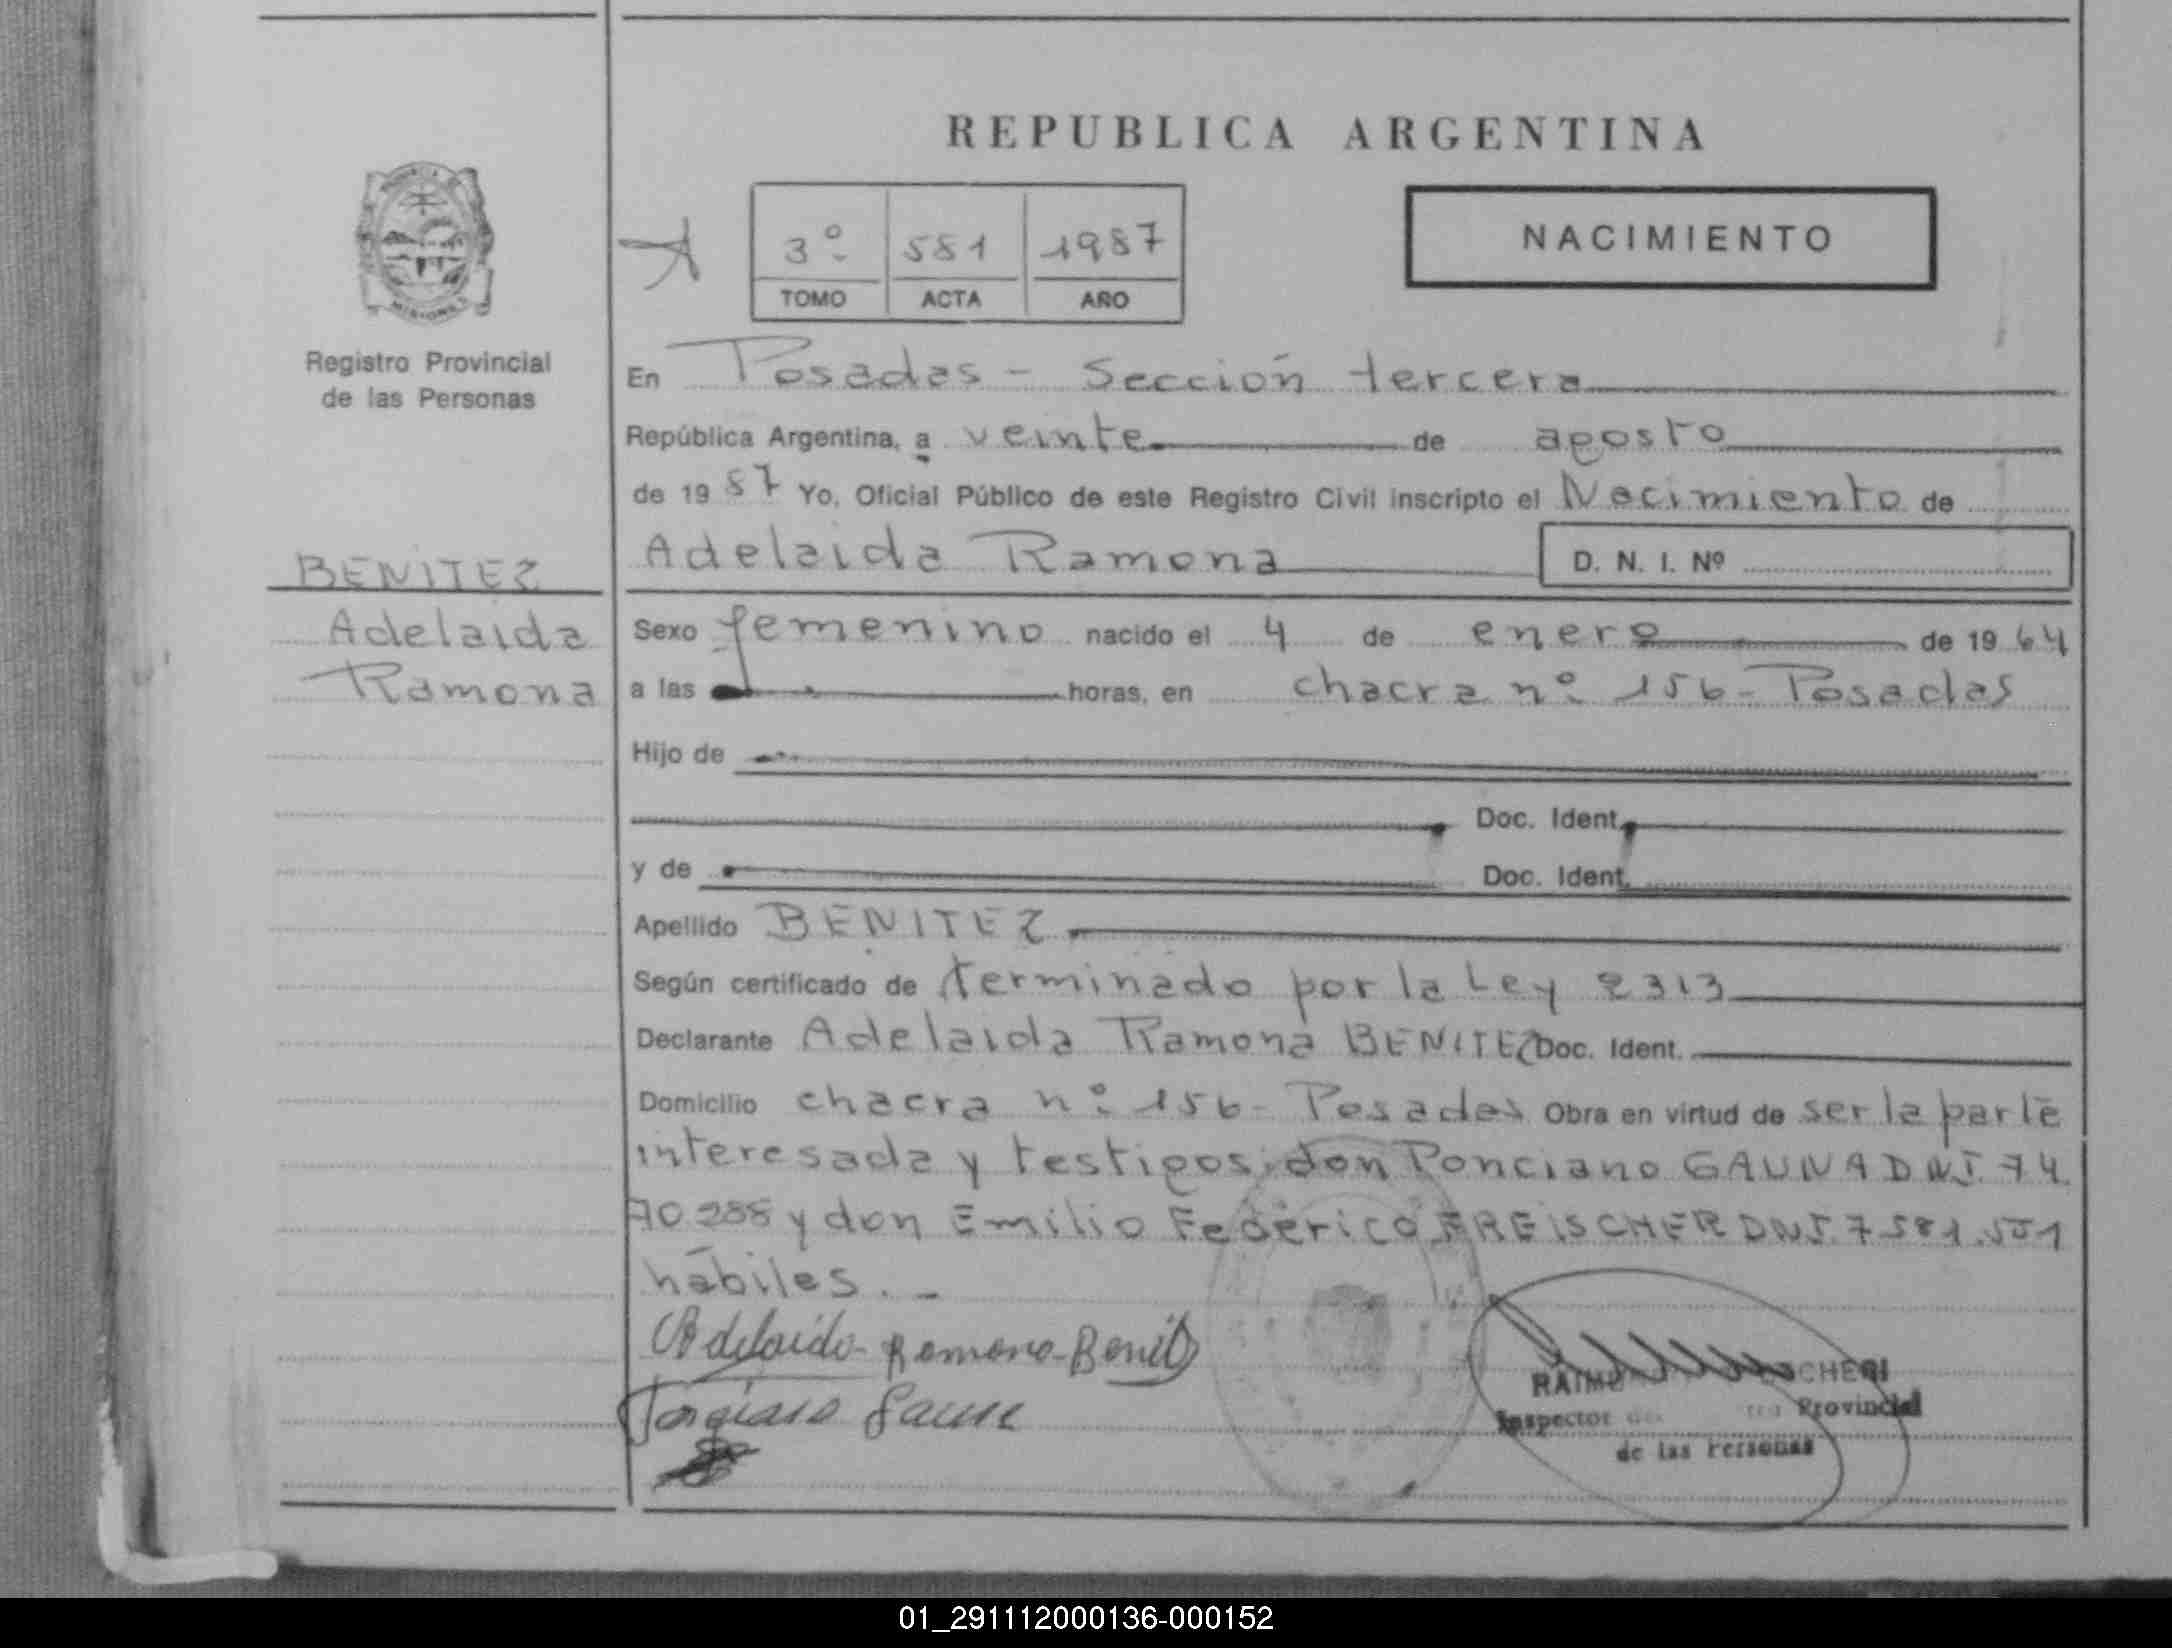 REPUBLICA ARGENTINA
NACIMIENTO
3º 581 1987
TOMO ACTA AÑO
MISIONES
Registro Provincial
de las Personas
En Posadas - Sección tercera
República Argentina, a veinte de agosto
de 1987 Yo, Oficial Público de este Registro Civil inscripto el Nacimiento de
Adelaida Ramona D. N. I. Nº
BENITEZ
Adelaida
Ramona
Sexo femenino nacido el 4 de enero de 1964
a las horas, en chacra nº 156 - Posadas
Hijo de
Doc. Ident.
y de Doc. Ident.
Apellido BENITEZ
Según certificado de terminado por la Ley 2313
Declarante Adelaida Ramona BENITEZ Doc. Ident.
Domicilio chacra nº 156 - Posadas Obra en virtud de ser la parte
interesada y testigos: don Ponciano GAUNA DNI. 74
70288 y don Emilio Federico FREISCHER DNI. 7581.551
hábiles. -
Adelaida Ramona Benitez
Ponciano Gauna
Inspector Provincial
de las Personas
01_291112000136-000152